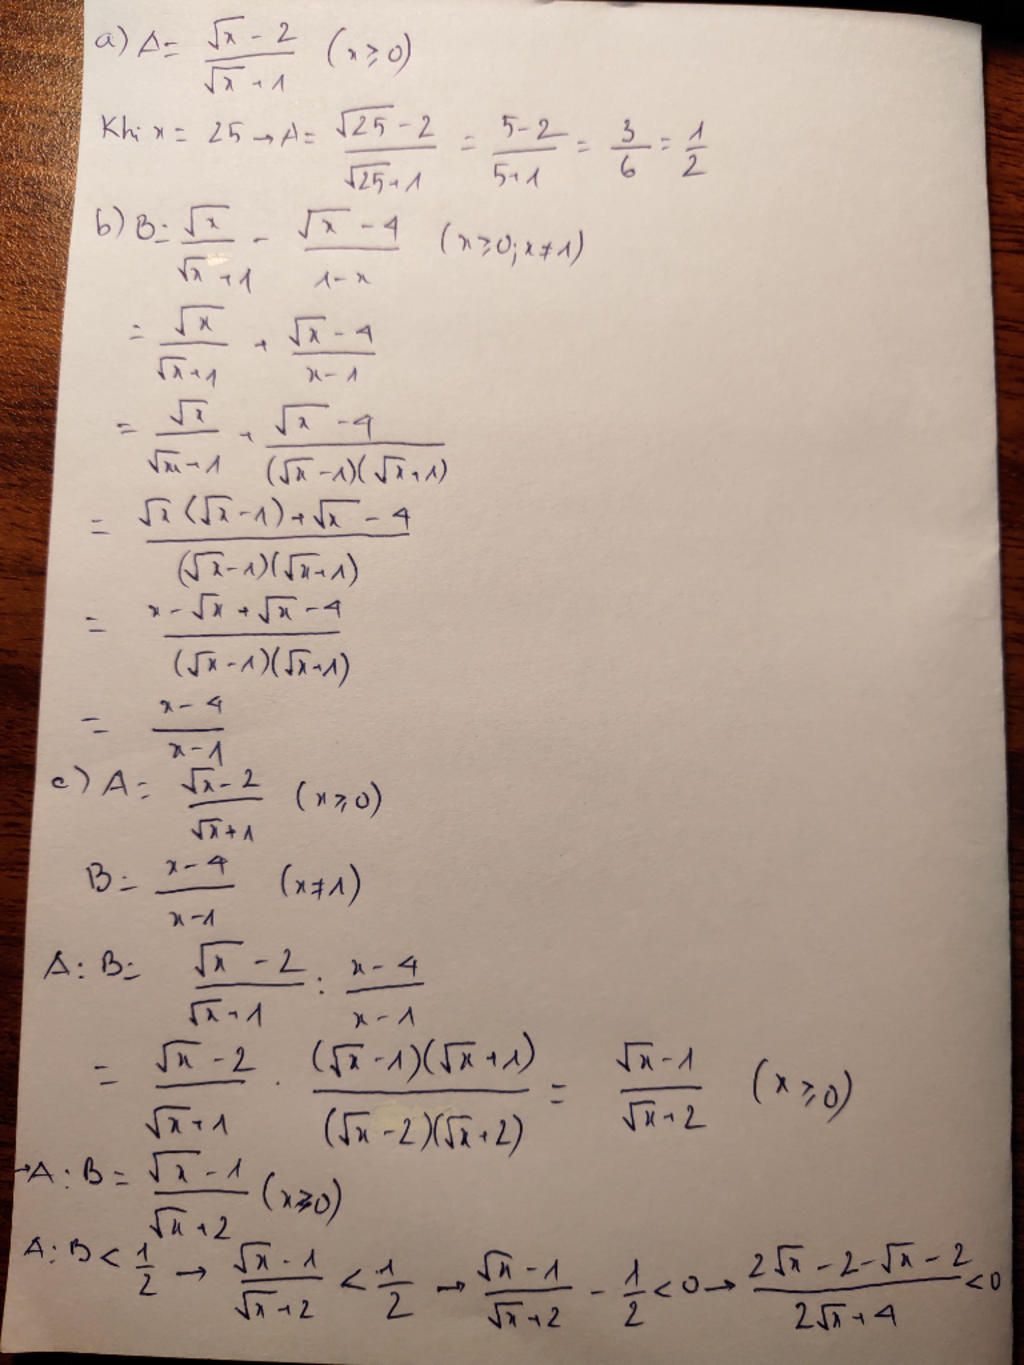 a) A = (√x - 2)/(√x + 1) (x ≥ 0)
Khi x = 25 → A = (√25 - 2)/(√25 + 1) = (5 - 2)/(5 + 1) = 3/6 = 1/2
b) B = √x/(√x + 1) - (√x - 4)/(1 - x) (x ≥ 0; x ≠ 1)
= √x/(√x + 1) + (√x - 4)/(x - 1)
= √x/(√x + 1) + (√x - 4)/((√x - 1)(√x + 1))
= (√x(√x - 1) + √x - 4)/((√x - 1)(√x + 1))
= (x - √x + √x - 4)/((√x - 1)(√x + 1))
= (x - 4)/(x - 1)
c) A = (√x - 2)/(√x + 1) (x ≥ 0)
B = (x - 4)/(x - 1) (x ≠ 1)
A : B = (√x - 2)/(√x + 1) : (x - 4)/(x - 1)
= (√x - 2)/(√x + 1) . ((√x - 1)(√x + 1))/((√x - 2)(√x + 2)) = (√x - 1)/(√x + 2) (x ≥ 0)
→ A : B = (√x - 1)/(√x + 2) (x ≥ 0)
A : B < 1/2 → (√x - 1)/(√x + 2) < 1/2 → (√x - 1)/(√x + 2) - 1/2 < 0 → (2√x - 2 - √x - 2)/(2√x + 4) < 0